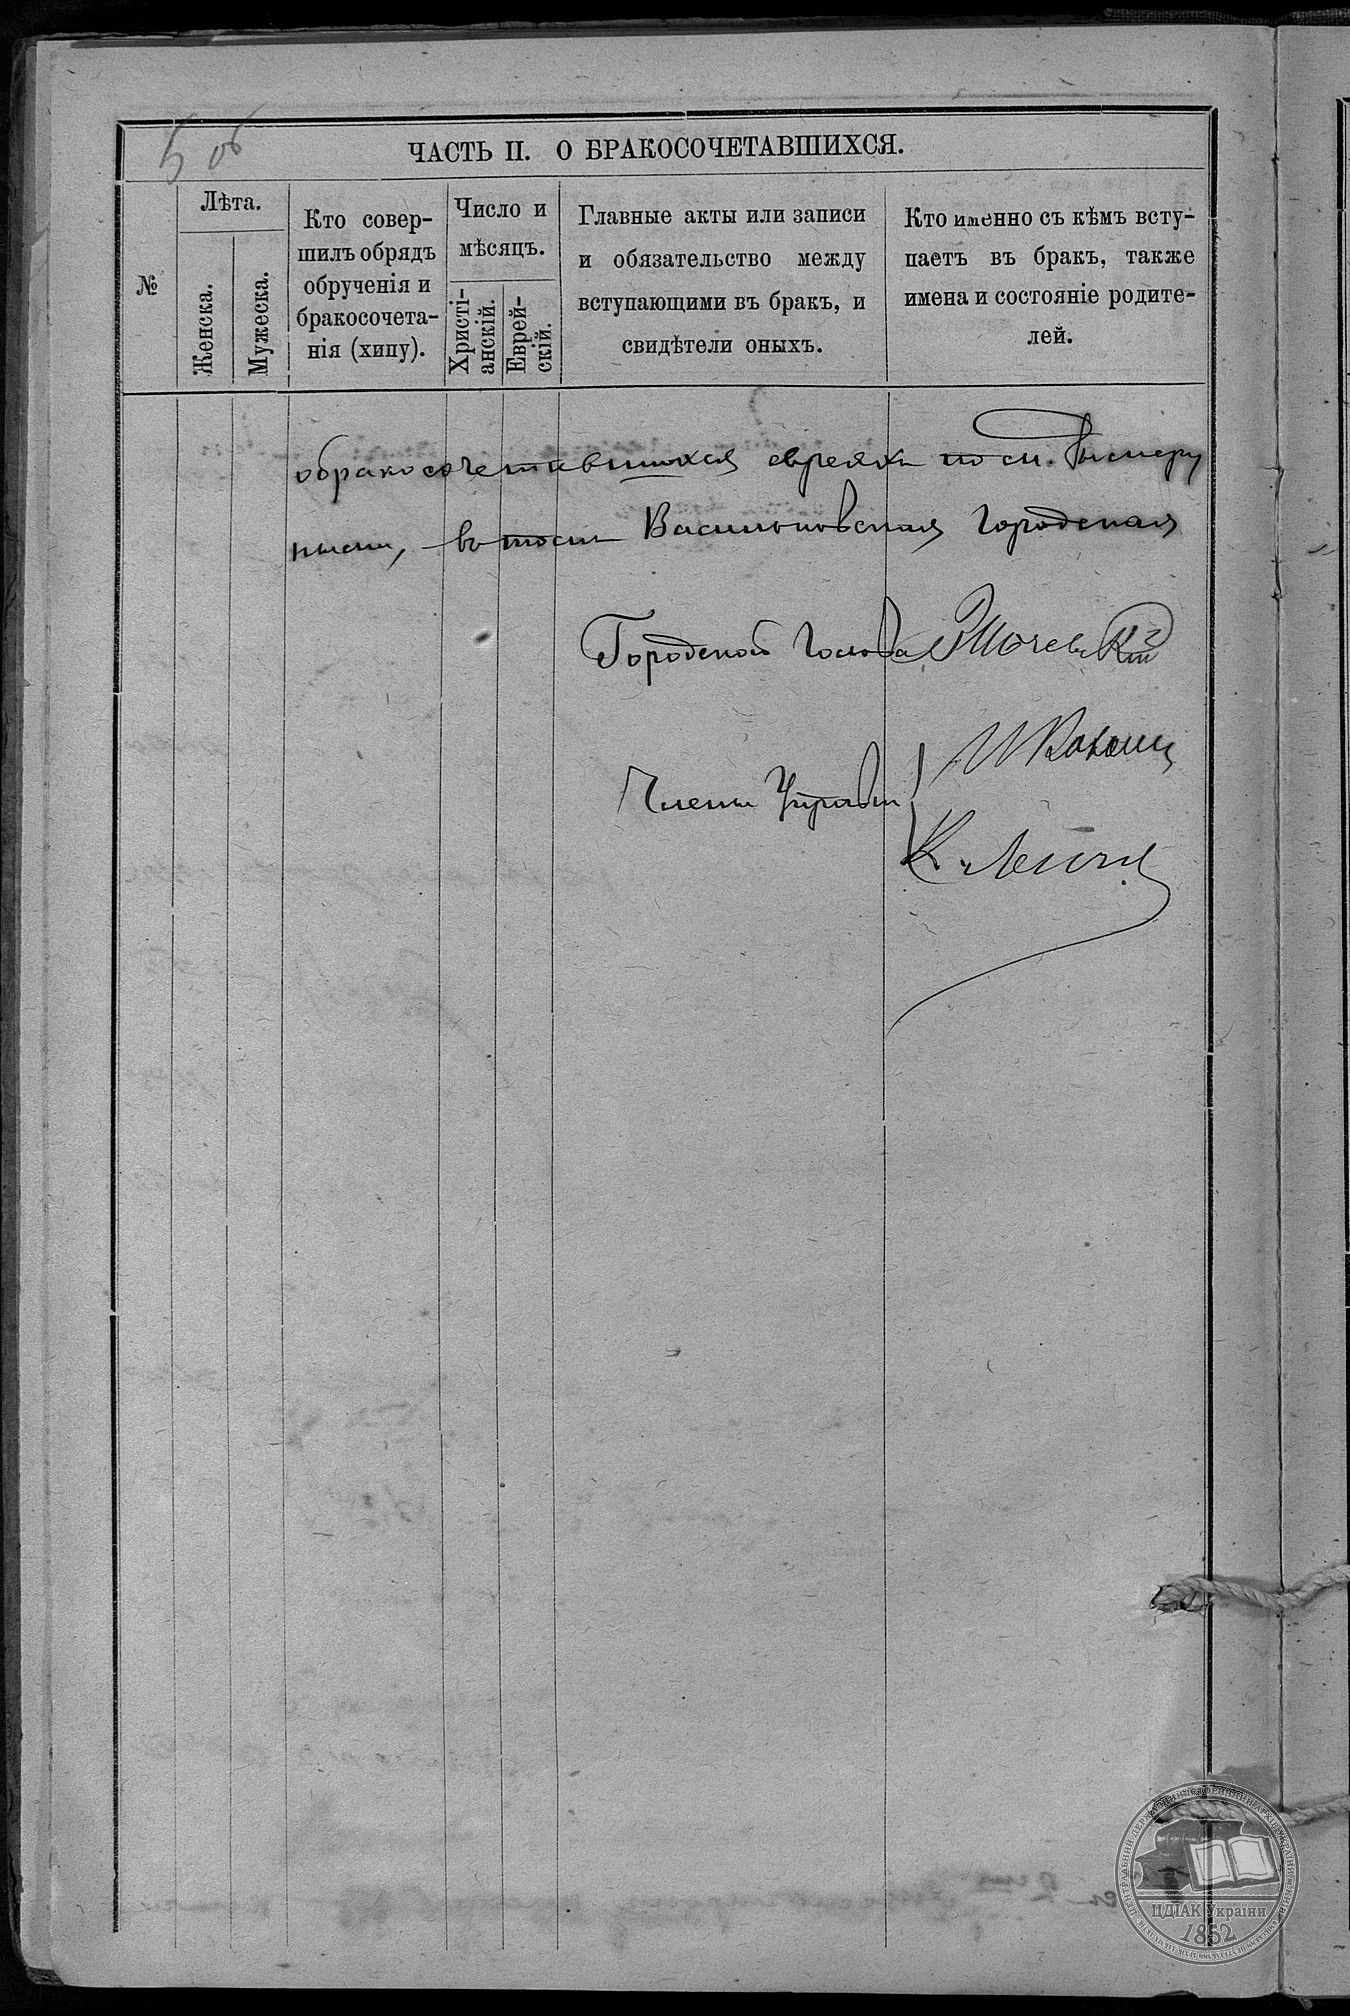 5 об
ЧАСТЬ II. О БРАКОСОЧЕТАВШИХСЯ.
№
Лѣта.
Женска.
Мужеска.
Кто совер-
шилъ обрядъ
обрученія и
бракосочета-
нія (хипу).
Число и
мѣсяцъ.
Христі-
анскій.
Еврей-
скій.
Главные акты или записи
и обязательство между
вступающими въ бракъ, и
свидѣтели оныхъ.
Кто именно съ кѣмъ всту-
паетъ въ бракъ, также
имена и состояніе родите-
лей.
обракосочетавшихся евреяхъ по м.
Васильковская Городская
Городской Голова
Члены Управы
К.
ЦДІАК України
1852